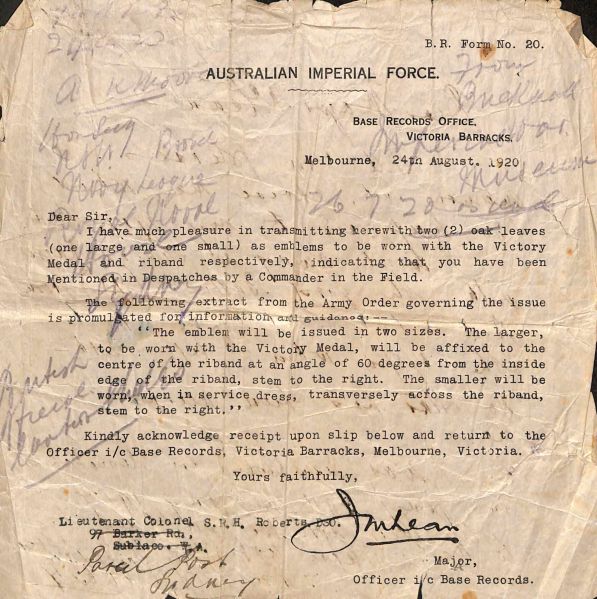 B.R. Form No. 20.
AUSTRALIAN IMPERIAL FORCE.
From
BASE RECORDS OFFICE,
VICTORIA BARRACKS,
War
Museum
Melbourne, 24th August. 1920
Navy League
26 7 20
Dear Sir,
I have much pleasure in transmitting herewith two (2) oak leaves
(one large and one small) as emblems to be worn with the Victory
Medal and riband respectively, indicating that you have been
Mentioned in Despatches by a Commander in the Field.
The following extract from the Army Order governing the issue
is promulgated for information and guidance:--
''The emblem will be issued in two sizes. The larger,
to be worn with the Victory Medal, will be affixed to the
centre of the riband at an angle of 60 degrees from the inside
edge of the riband, stem to the right. The smaller will be
worn, when in service dress, transversely across the riband,
stem to the right.''
British
Kindly acknowledge receipt upon slip below and return to the
Officer i/c Base Records, Victoria Barracks, Melbourne, Victoria.
Yours faithfully,
Lieutenant Colonel S.R.H. Roberts, DSO.
97 Barker Rd.,
Subiaco. W.A.
Parcel Post
Sydney
JMLean
Major,
Officer i/c Base Records.